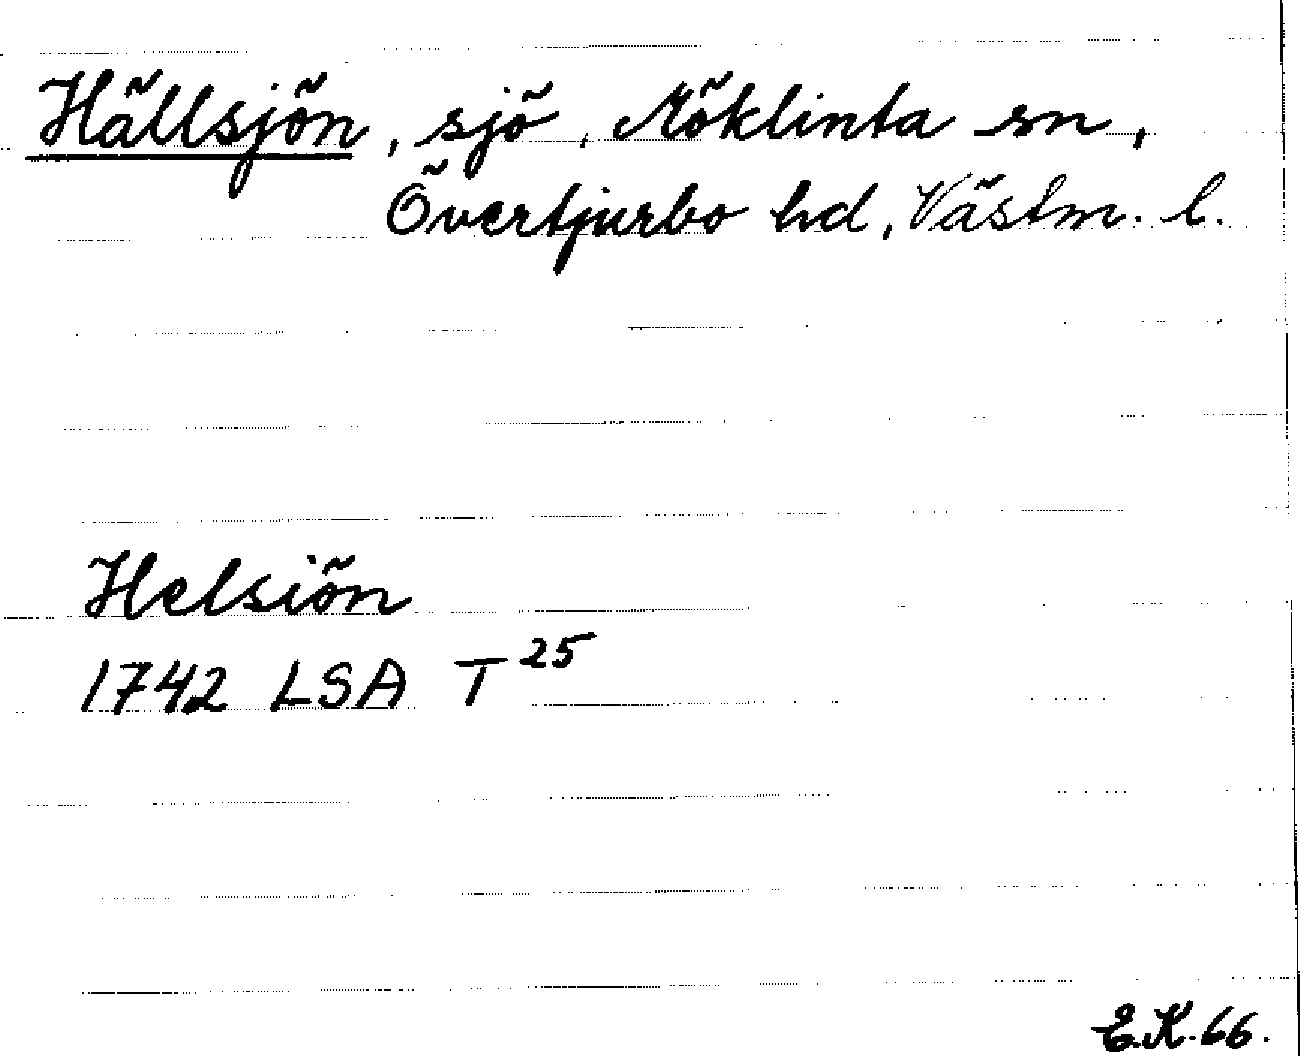 Hällsjön, sjö, Möklinta sn,
Övertjurbo hd, Västm. l.
Helsiön
1742 LSA T 25
E.K. 66.